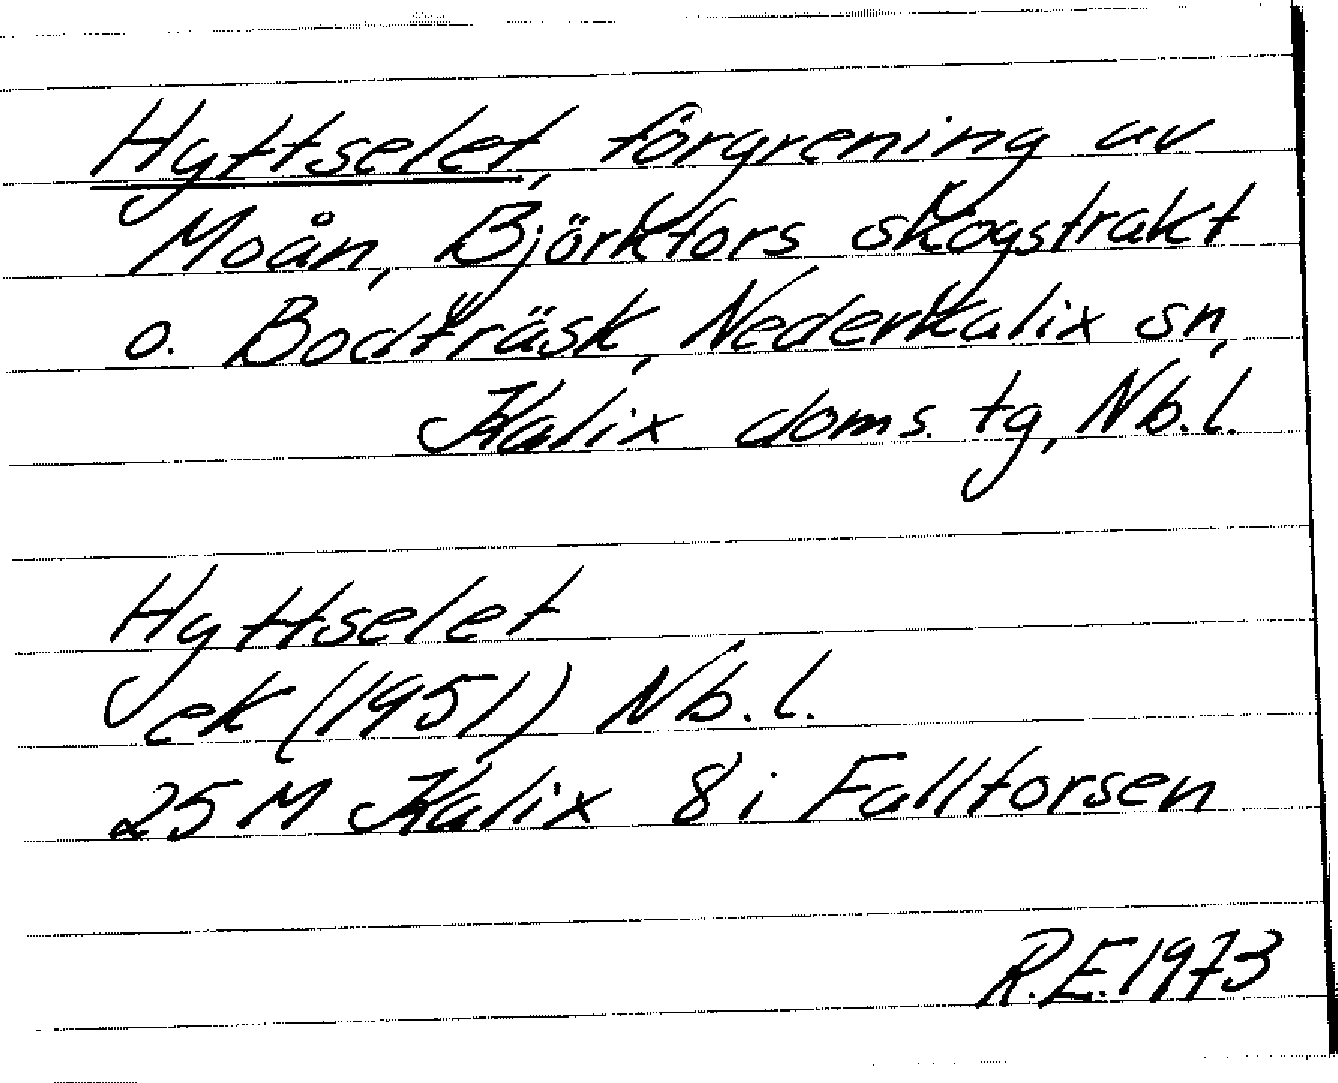 Hyttselet, förgrening av
Moån, Björkfors skogstrakt
o. Bodträsk, Nederkalix sn,
Kalix doms. tg, Nb.l.
Hyttselet
ek (1951) Nb.l.
25 M Kalix 8 i Fallforsen
R.E. 1973